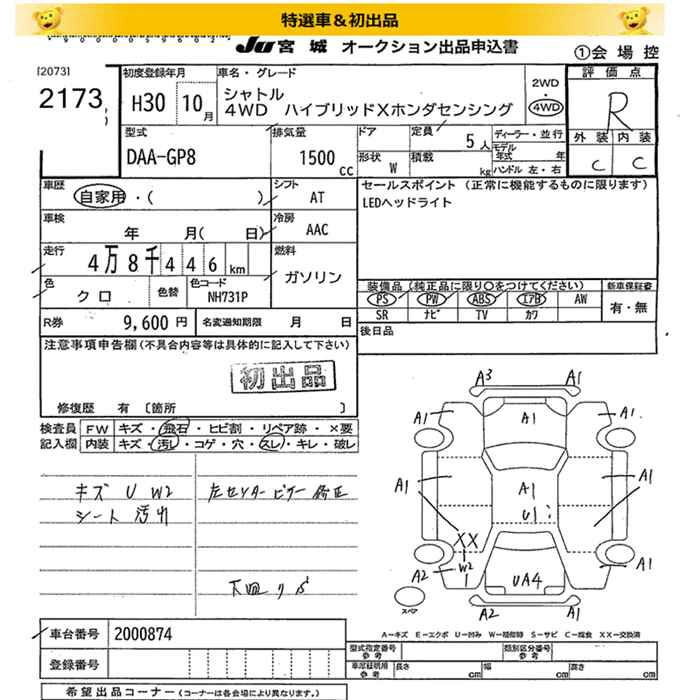 特選車＆初出品
JU 宮城 オークション出品申込書
①会場控
[2073]
2173
初度登録年月
H30 10月
車名・グレード
シャトル
4WD ハイブリッドXホンダセンシング
2WD
・
4WD
評価点
R
外装 内装
C C
型式
DAA-GP8
排気量
1500 cc
ドア
定員
5人
形状
W
積載
kg
ディーラー・並行
モデル年式 年
ハンドル 左・右
車歴
自家用・( )
シフト
AT
セールスポイント (正常に機能するものに限ります)
LEDヘッドライト
車検
年 月( 日)
冷房
AAC
走行
4万8千446km
燃料
ガソリン
色
クロ
色替
色コード
NH731P
装備品 (純正品に限り○をつけてください)
新車保証書
PS PW ABS エアB AW
有・無
SR ナビ TV カワ
R券 9,600円
名変通知期限 月 日
後日品
注意事項申告欄(不具合内容等は具体的に記入して下さい)
初出品
修復歴 有 〔箇所 〕
検査員記入欄
FW キズ・飛石・ヒビ割・リペア跡・×要
内装 キズ・汚レ・コゲ・穴・スレ・キレ・破レ
キズ U W2
シート汚れ
左センターピラー修正
下回りサビ
A3 A1
A1 A1 A1
A1 A1 A1
U1
XX
W2
A2 1 UA4 A1
A2 A1
スペア
A=キズ E=エクボ U=凹み W=補修跡 S=サビ C=腐食 XX=交換済
車台番号 2000874
登録番号
型式指定番号 参考
類別区分番号 参考
車庫証明用 参考
長さ cm 幅 cm 高さ cm
希望出品コーナー (コーナーは各会場により異なります。)